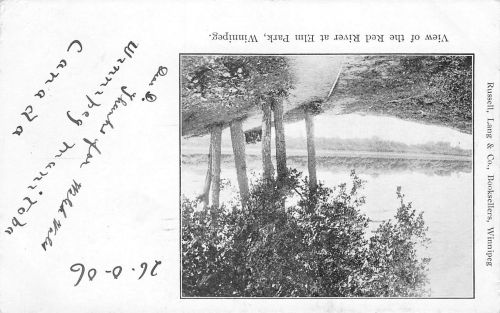 View of the Red River at Elm Park, Winnipeg.
Russell, Lang & Co., Booksellers, Winnipeg
Thanks for
Winnipeg Manitoba
Canada
26-0-06